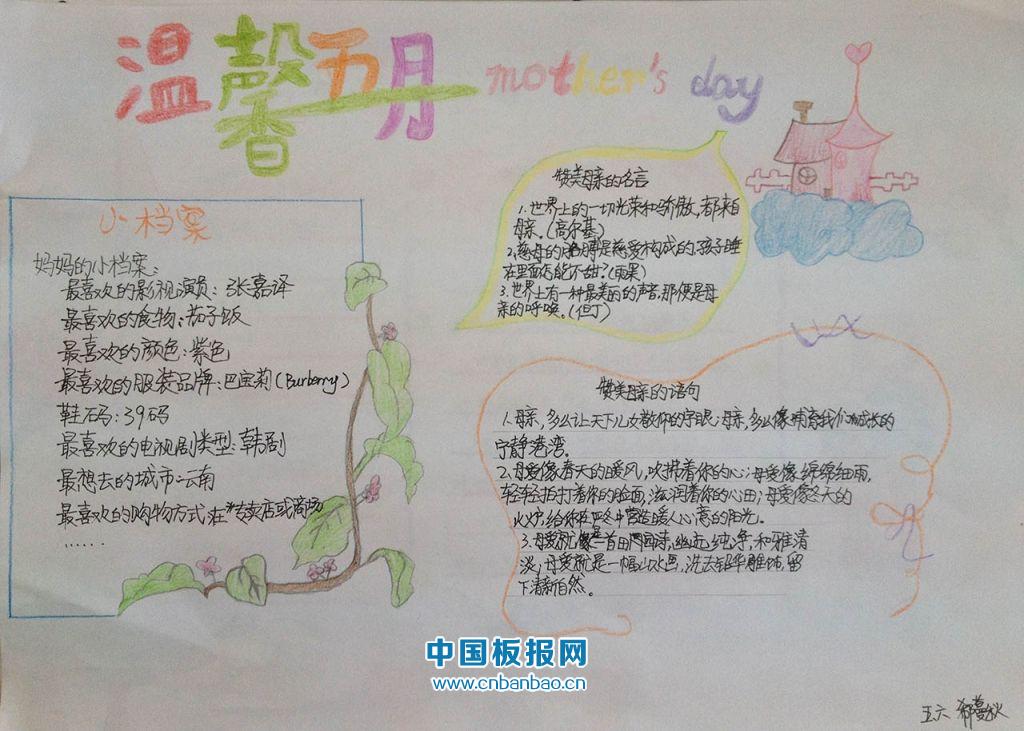 温馨五月 mother's day
小档案
妈妈的小档案:
最喜欢的影视演员:张嘉译
最喜欢的食物:茄子饭
最喜欢的颜色:紫色
最喜欢的服装品牌:巴宝莉(Burberry)
鞋码:39码
最喜欢的电视剧类型:韩剧
最想去的城市:云南
最喜欢的购物方式:在专卖店或商场
……
赞美母亲的名言
1.世界上的一切光荣和骄傲,都来自
母亲。(高尔基)
2.慈母的胳膊是慈爱构成的,孩子睡
在里面怎能不甜?(雨果)
3.世界上有一种最美丽的声音,那便是母
亲的呼唤。(但丁)
赞美母亲的语句
1.母亲,多么让天下儿女敬仰的字眼;母亲,多么像哺育我们成长的
宁静港湾。
2.母爱像春天的暖风,吹拂着你的心;母爱像绵绵细雨,
轻轻拍打着你的脸面,滋润着你的心田;母爱像冬天的
火炉,给你在严冬中营造暖人心意的阳光。
3.母爱就是一首田园诗,幽远纯净,和雅清
淡;母爱就是一幅山水画,洗去铅华雕饰,留
下清新自然。
中国板报网
www.cnbanbao.cn
五六